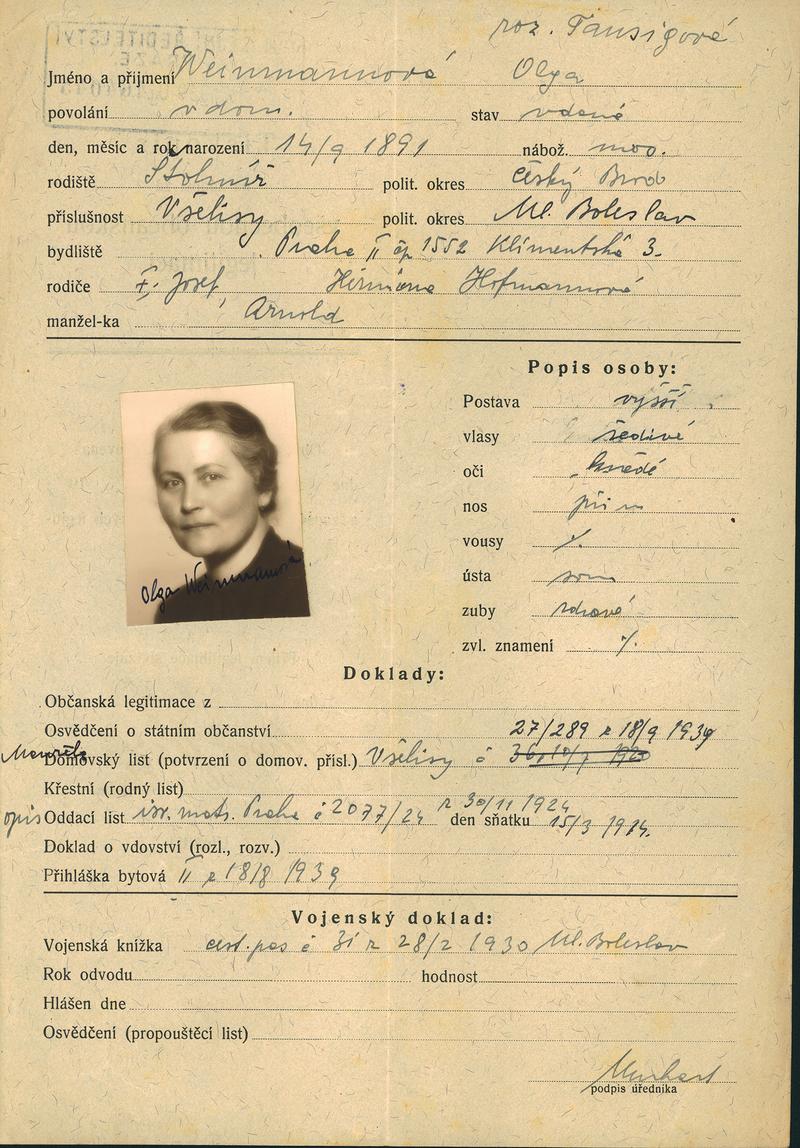 roz. Tausigové
Jméno a příjmení Weinmannová Olga
povolání v dom. stav vdaná
den, měsíc a rok narození 14/9 1891 nábož. moj.
rodiště Štolmíř polit. okres Český Brod
příslušnost Všelisy polit. okres Ml. Boleslav
bydliště Praha II čp 1552 Klimentská 3.
rodiče Josef, Hermina Hofmannová
manžel-ka Arnold
Popis osoby:
Postava vyšší
vlasy šedivé
oči hnědé
nos přím
vousy ⁒
ústa soum
zuby zdravé
zvl. znamení ⁒
Olga Weinmannová
Doklady:
Občanská legitimace z
Osvědčení o státním občanství 27/289 z 18/9 1939
Manžela
Domovský list (potvrzení o domov. přísl.) Všelisy č
Křestní (rodný list)
z 30/11 1924
opis Oddací list isr. mat. Praha č 2077/24 den sňatku 15/3 1914.
Doklad o vdovství (rozl., rozv.)
Přihláška bytová II z 18/8 1939
Vojenský doklad:
Vojenská knížka cest. pas č 31 z 28/2 1930 Ml. Boleslav
Rok odvodu hodnost
Hlášen dne
Osvědčení (propouštěcí list)
podpis úředníka